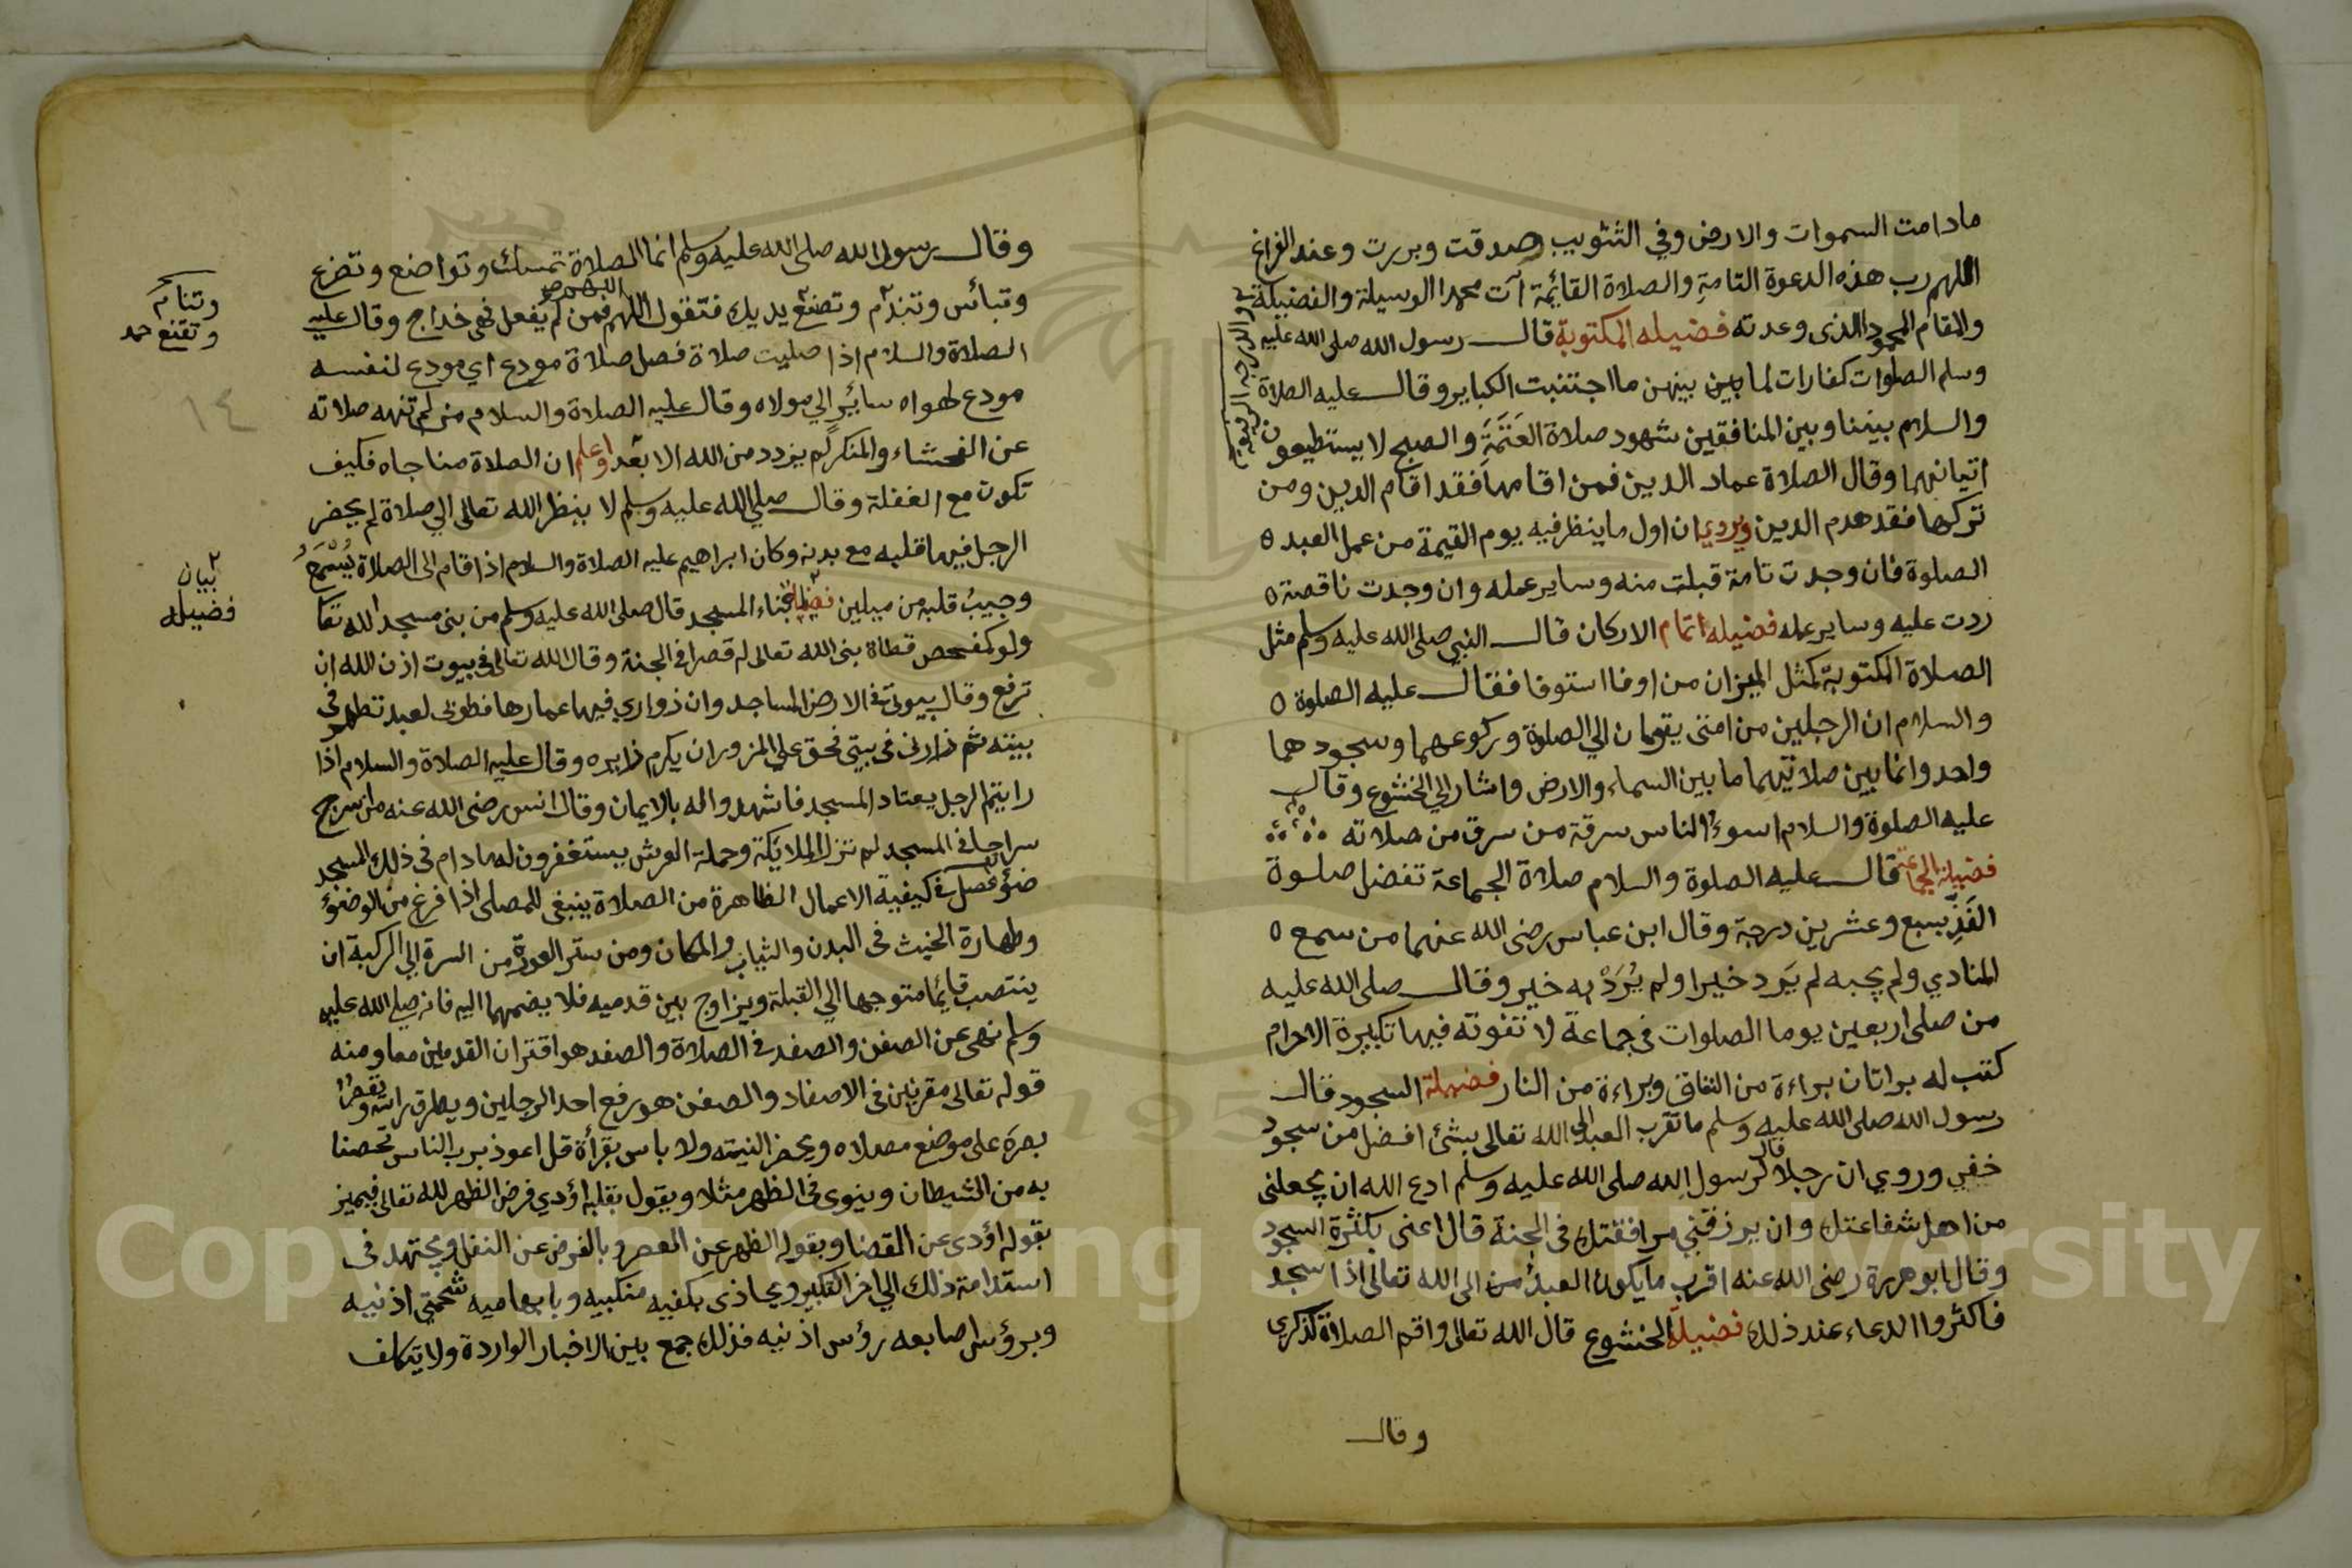 مادامت السموات والارض وفي التثويب صدقت وبررت وعند الفراغ
اللهم رب هذه الدعوة التامة والصلاة القائمة آت محمدا الوسيلة والفضيلة
والدرجة الرفيعة
والمقام المحمود الذى وعدته فضيله المكتوبة قال رسول الله صلى الله عليه
وسلم الصلوات كفارات لما بين بينهن ما اجتنبت الكباير وقال عليه الصلاة
والسلام بيننا وبين المنافقين شهود صلاة العَتَمَةِ والصبح لا يستطيعون
اتيانهما وقال الصلاة عماد الدين فمن اقامها فقد اقام الدين ومن
تركها فقد هدم الدين ويروي ان اول ما ينظر فيه يوم القيمة من عمل العبد ٥
الصلوة فان وجدت تامة قبلت منه وساير عمله وان وجدت ناقصة ٥
ردت عليه وساير عمله فضيله اتمام الاركان قال النبي صلى الله عليه وسلم مثل
الصلاة المكتوبة كمثل الميزان من اوفا استوفا فقال عليه الصلوة ٥
والسلام ان الرجلين من امتى يقومان الي الصلوة وركوعهما وسجودهما
واحد وانما بين صلاتيهما ما بين السماء والارض واشار الي الخشوع وقال
عليه الصلوة والسلام اسوء الناس سرقة من سرق من صلاته
فضيلة الجماعة قال عليه الصلوة والسلام صلاة الجماعة تفضل صلوة
الفَذِّ بسبع وعشرين درجة وقال ابن عباس رضى الله عنهما من سمع ٥
المنادي ولم يجبه لم يَرد خيرا ولم يُرَدْ به خير وقال صلى الله عليه
من صلى اربعين يوما الصلوات في جماعة لا تفوته فيها تكبيرة الاحرام
كتب له براتان براءة من النفاق وبراءة من النار فضيلة السجود قال
رسول الله صلى الله عليه وسلم ما تقرب العبد الى الله تعالى بشئ افضل من سجود
خفي وروي ان رجلا قال لرسول الله صلى الله عليه وسلم ادع الله ان يجعلنى
من اهل شفاعتك وان يرزقني مرافقتك فى الجنة قال اعنى بكثرة السجود
وقال ابو هريرة رضى الله عنه اقرب ما يكون العبد من الى الله تعالى اذا سجد
فاكثروا الدعاء عند ذلك فضيلة الخشوع قال الله تعالى واقم الصلاة لذكرى
وقال
وقال رسول الله صلى الله عليه وسلم انما الصلاة تمسك وتواضع وتضرع
وتبائس وتندم وتضع يديك فتقول اللهم اللهم فمن لم يفعل فهى خداج وقال عليه
الصلاة والسلام اذا صليت صلاة فصل صلاة مودع اي مودع لنفسه
مودع لهواه سائر الي مولاه وقال عليه الصلاة والسلام من لم تنهه صلاته
عن الفحشاء والمنكر لم يزدد من الله الا بعدا واعلم ان الصلاة مناجاه فكيف
تكون مع الغفلة وقال صلي الله عليه وسلم لا ينظر الله تعالى الي صلاة لم يحضر
الرجل فيها قلبه مع بدنه وكان ابراهيم عليه الصلاة والسلام اذا قام الى الصلاة يُسْمَعُ
وجيبُ قلبه من ميلين بناء المسجد قال صلى الله عليه وسلم من بنى مسجد الله تعا
ولو كمفحص قطاة بنى الله تعالى له قصرا في الجنة وقال الله تعالى في بيوت اذن الله ان
ترفع وقال بيوتى في الارض المساجد وان زواري فيها عمارها فطوبى لعبد تطهر في
بيته ثم زارنى فى بيتى فحق علي المزور ان يكرم زايره وقال عليه الصلاة والسلام اذا
رايتم الرجل يعتاد المسجد فاشهدوا له بالايمان وقال انس رضى الله عنه من سرج
سراجا في المسجد لم تزل الملايكة وحملة العرش يستغفرون له مادام فى ذلك المسجد
فصل في كيفية الاعمال الظاهرة من الصلاة ينبغى للمصلى اذا فرغ من الوضؤ
وطهارة الخبث فى البدن والثياب والمكان ومن ستر العورة من السرة الي الركبة ان
ينتصب قائما متوجها الي القبلة ويزاوج بين قدميه فلا يضمهما اليه فانه صلي الله عليه
وسلم نهى عن الصفن والصفد فى الصلاة والصفد هو اقتران القدمين معا ومنه
قوله تعالى مقرنين فى الاصفاد والصفن هو رفع احد الرجلين ويطرق راسه ويقصر
بصره على موضع مصلاه ويحضر النيته ولا باس بقرأة قل اعوذ برب الناس تحصنا
به من الشيطان وينوى فى الظهر مثلا ويقول بقلبه اؤدي فرض الظهر لله تعالى فيميز
بقوله اؤدى عن القضا وبقوله الظهر عن العصر وبالفرض عن النفل ويجتهد فى
استدامة ذلك الي اخر التكبير ويحاذى بكفيه منكبيه وبابهاميه شحمتي اذنيه
وبرؤس اصابعه رؤس اذنيه فذلك جمع بين الاخبار الواردة ولا يتكلف
وتقنع
١٤
بيان
فضيله
Copyright © King Saud University
1957